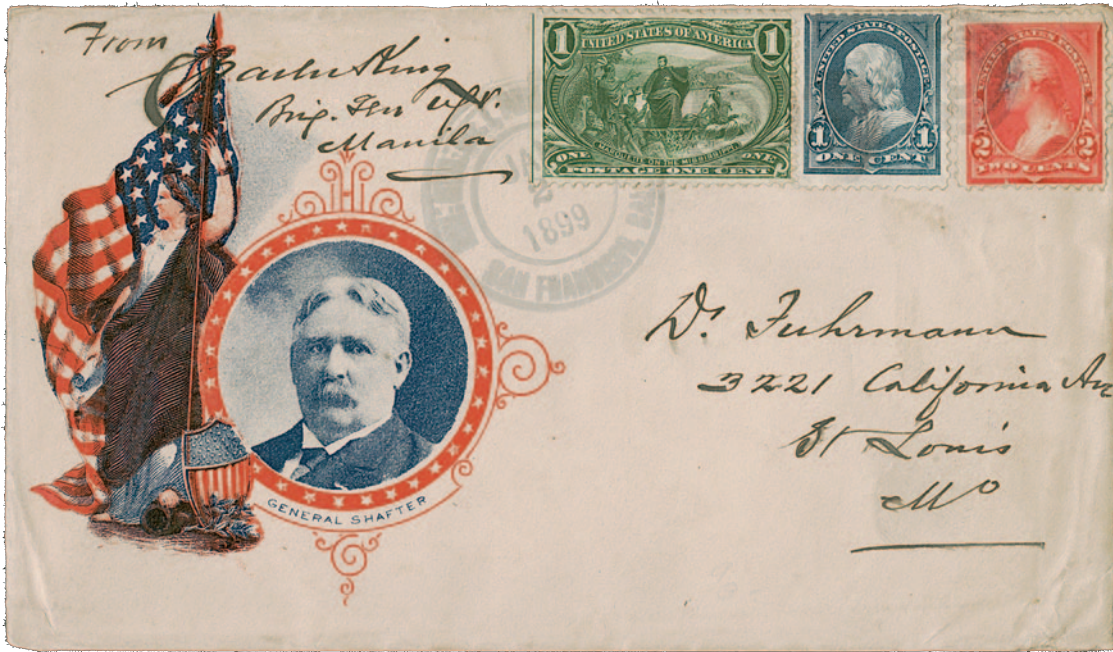 From
Charles King
Brig. Gen USV.
Manila
1 UNITED STATES OF AMERICA 1
MARQUETTE ON THE MISSISSIPPI.
ONE ONE
POSTAGE ONE CENT
UNITED STATES POSTAGE
1 1
ONE CENT
UNITED STATES POSTAGE
2 2
TWO CENTS
2
1899
SAN FRANCISCO, CAL
Dr. Fuhrmann
3221 California Av
St Louis
Mo
GENERAL SHAFTER